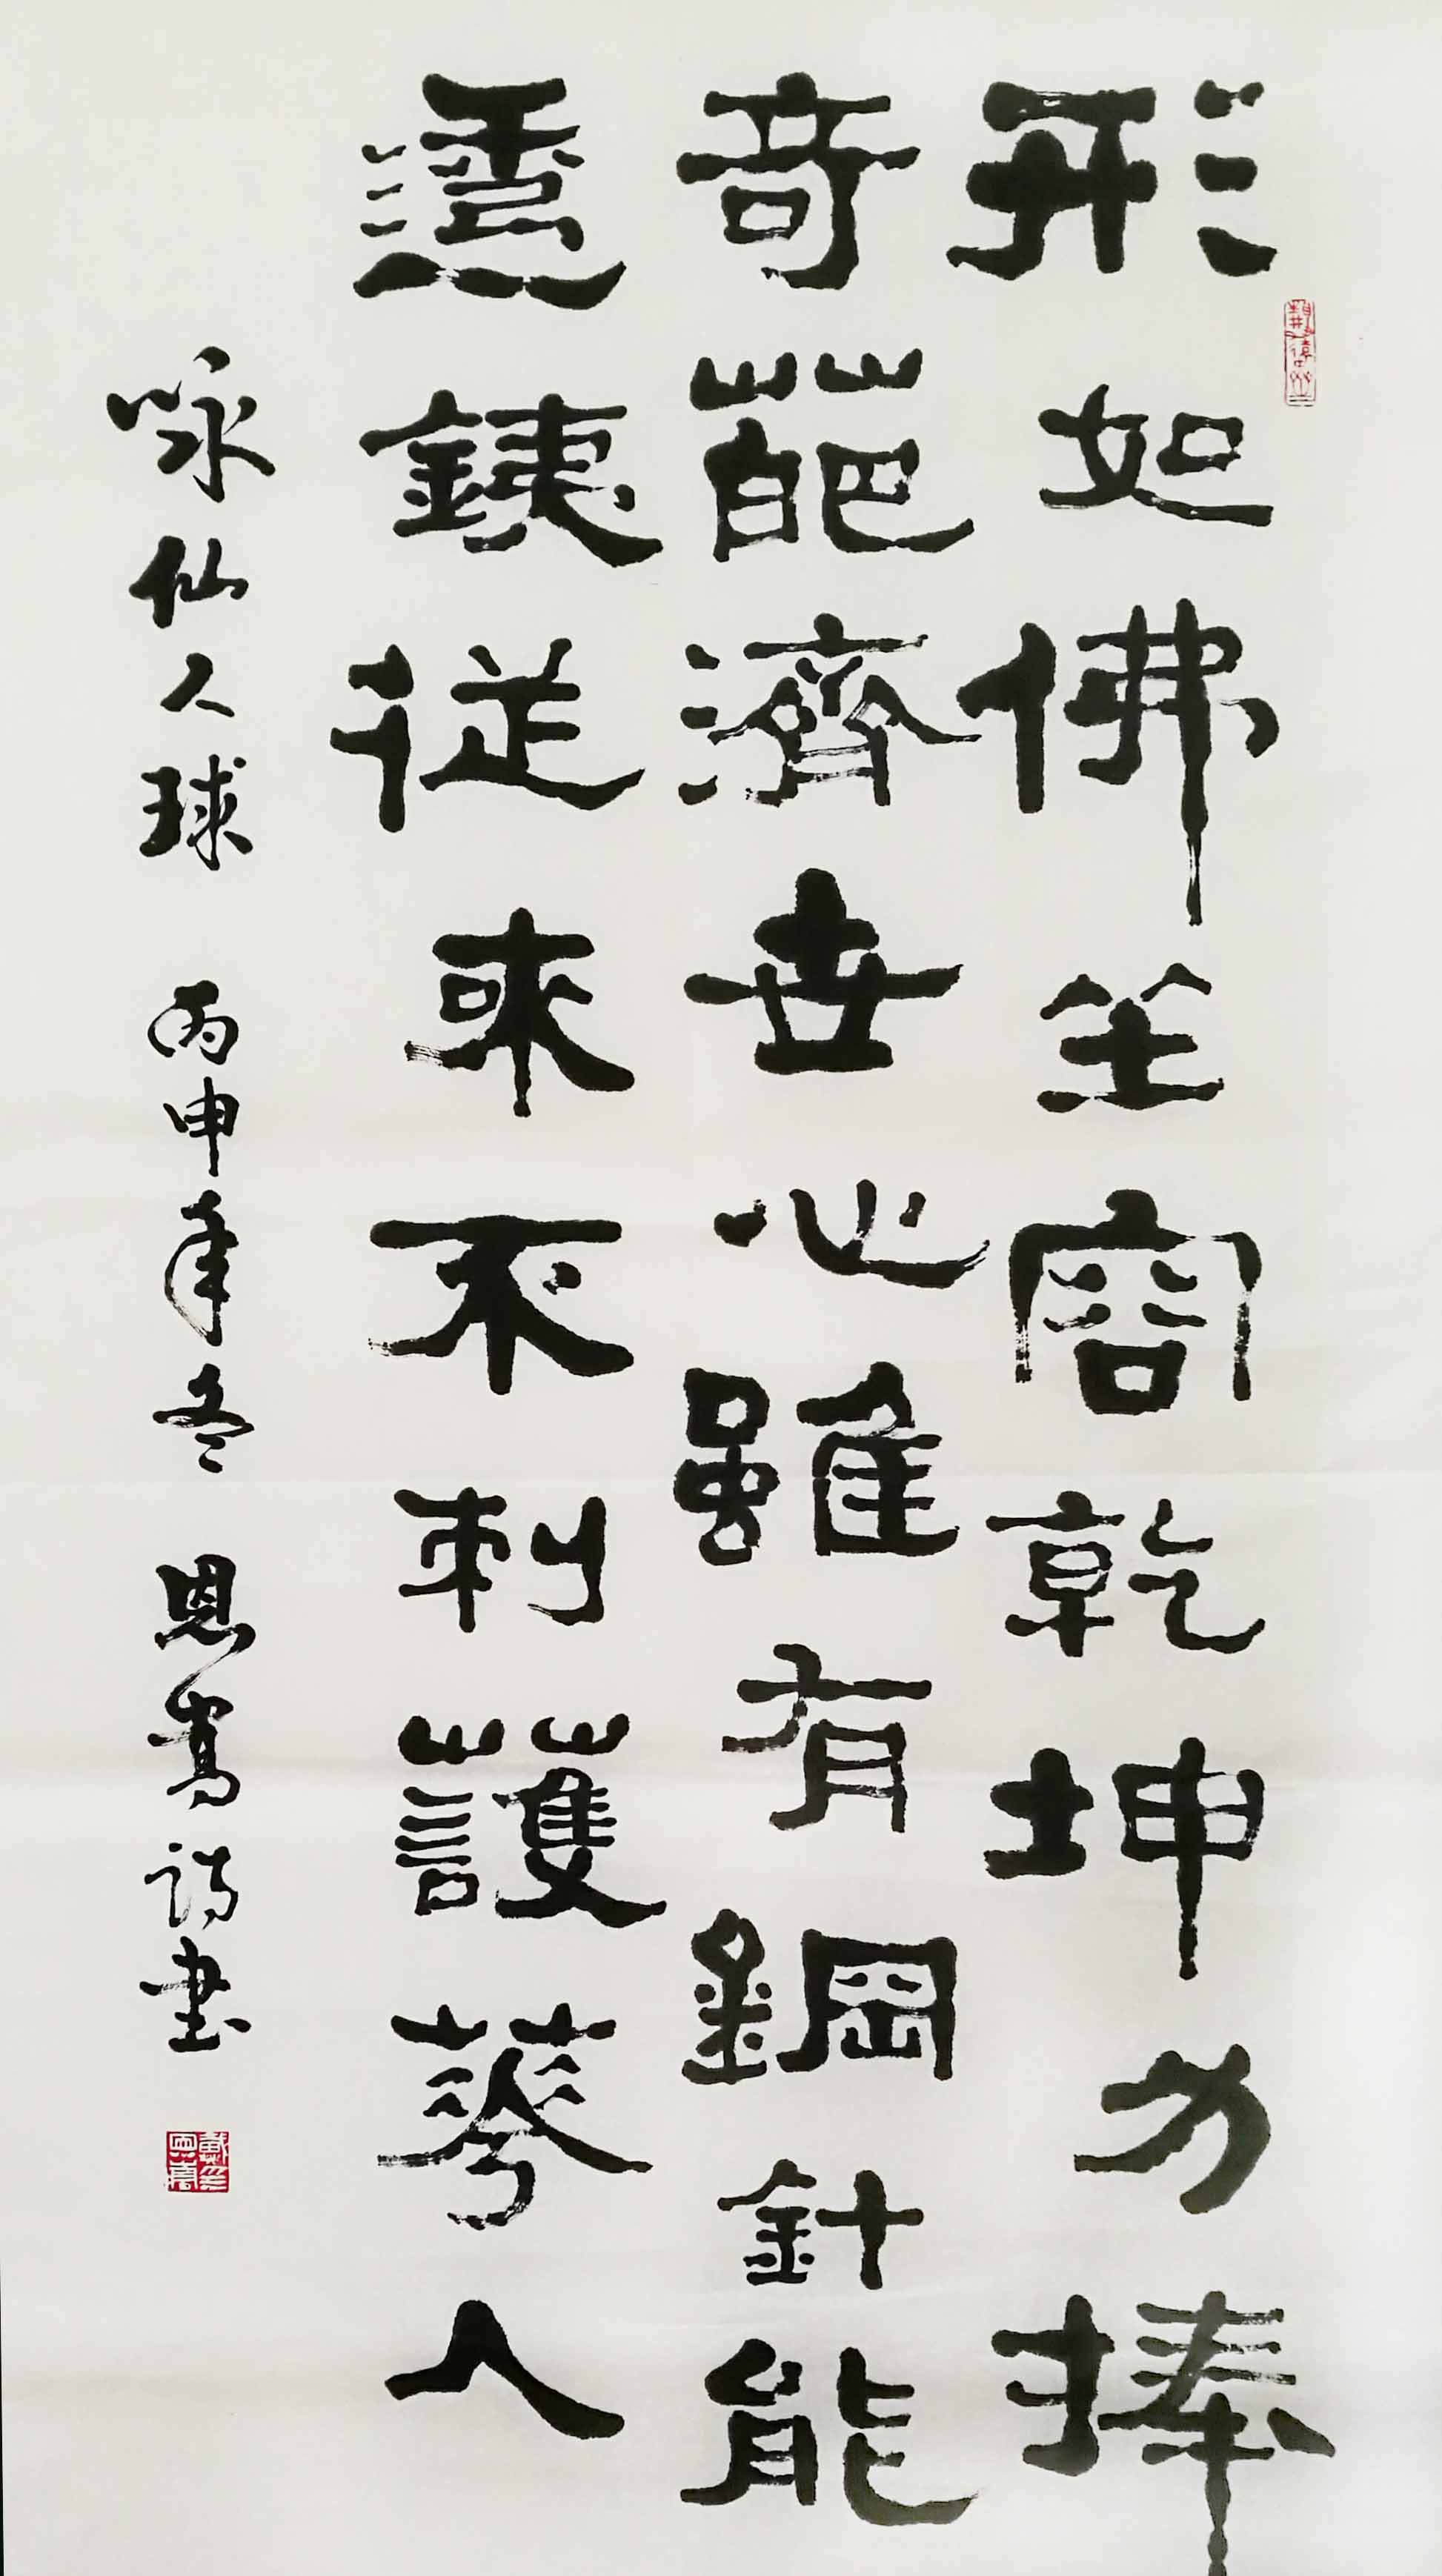 形如佛坐容乾坤力捧
奇葩濟世心雖有鋼針能
透銕従來不刺護華人
咏仙人球 丙申年冬 恩嵩詩書